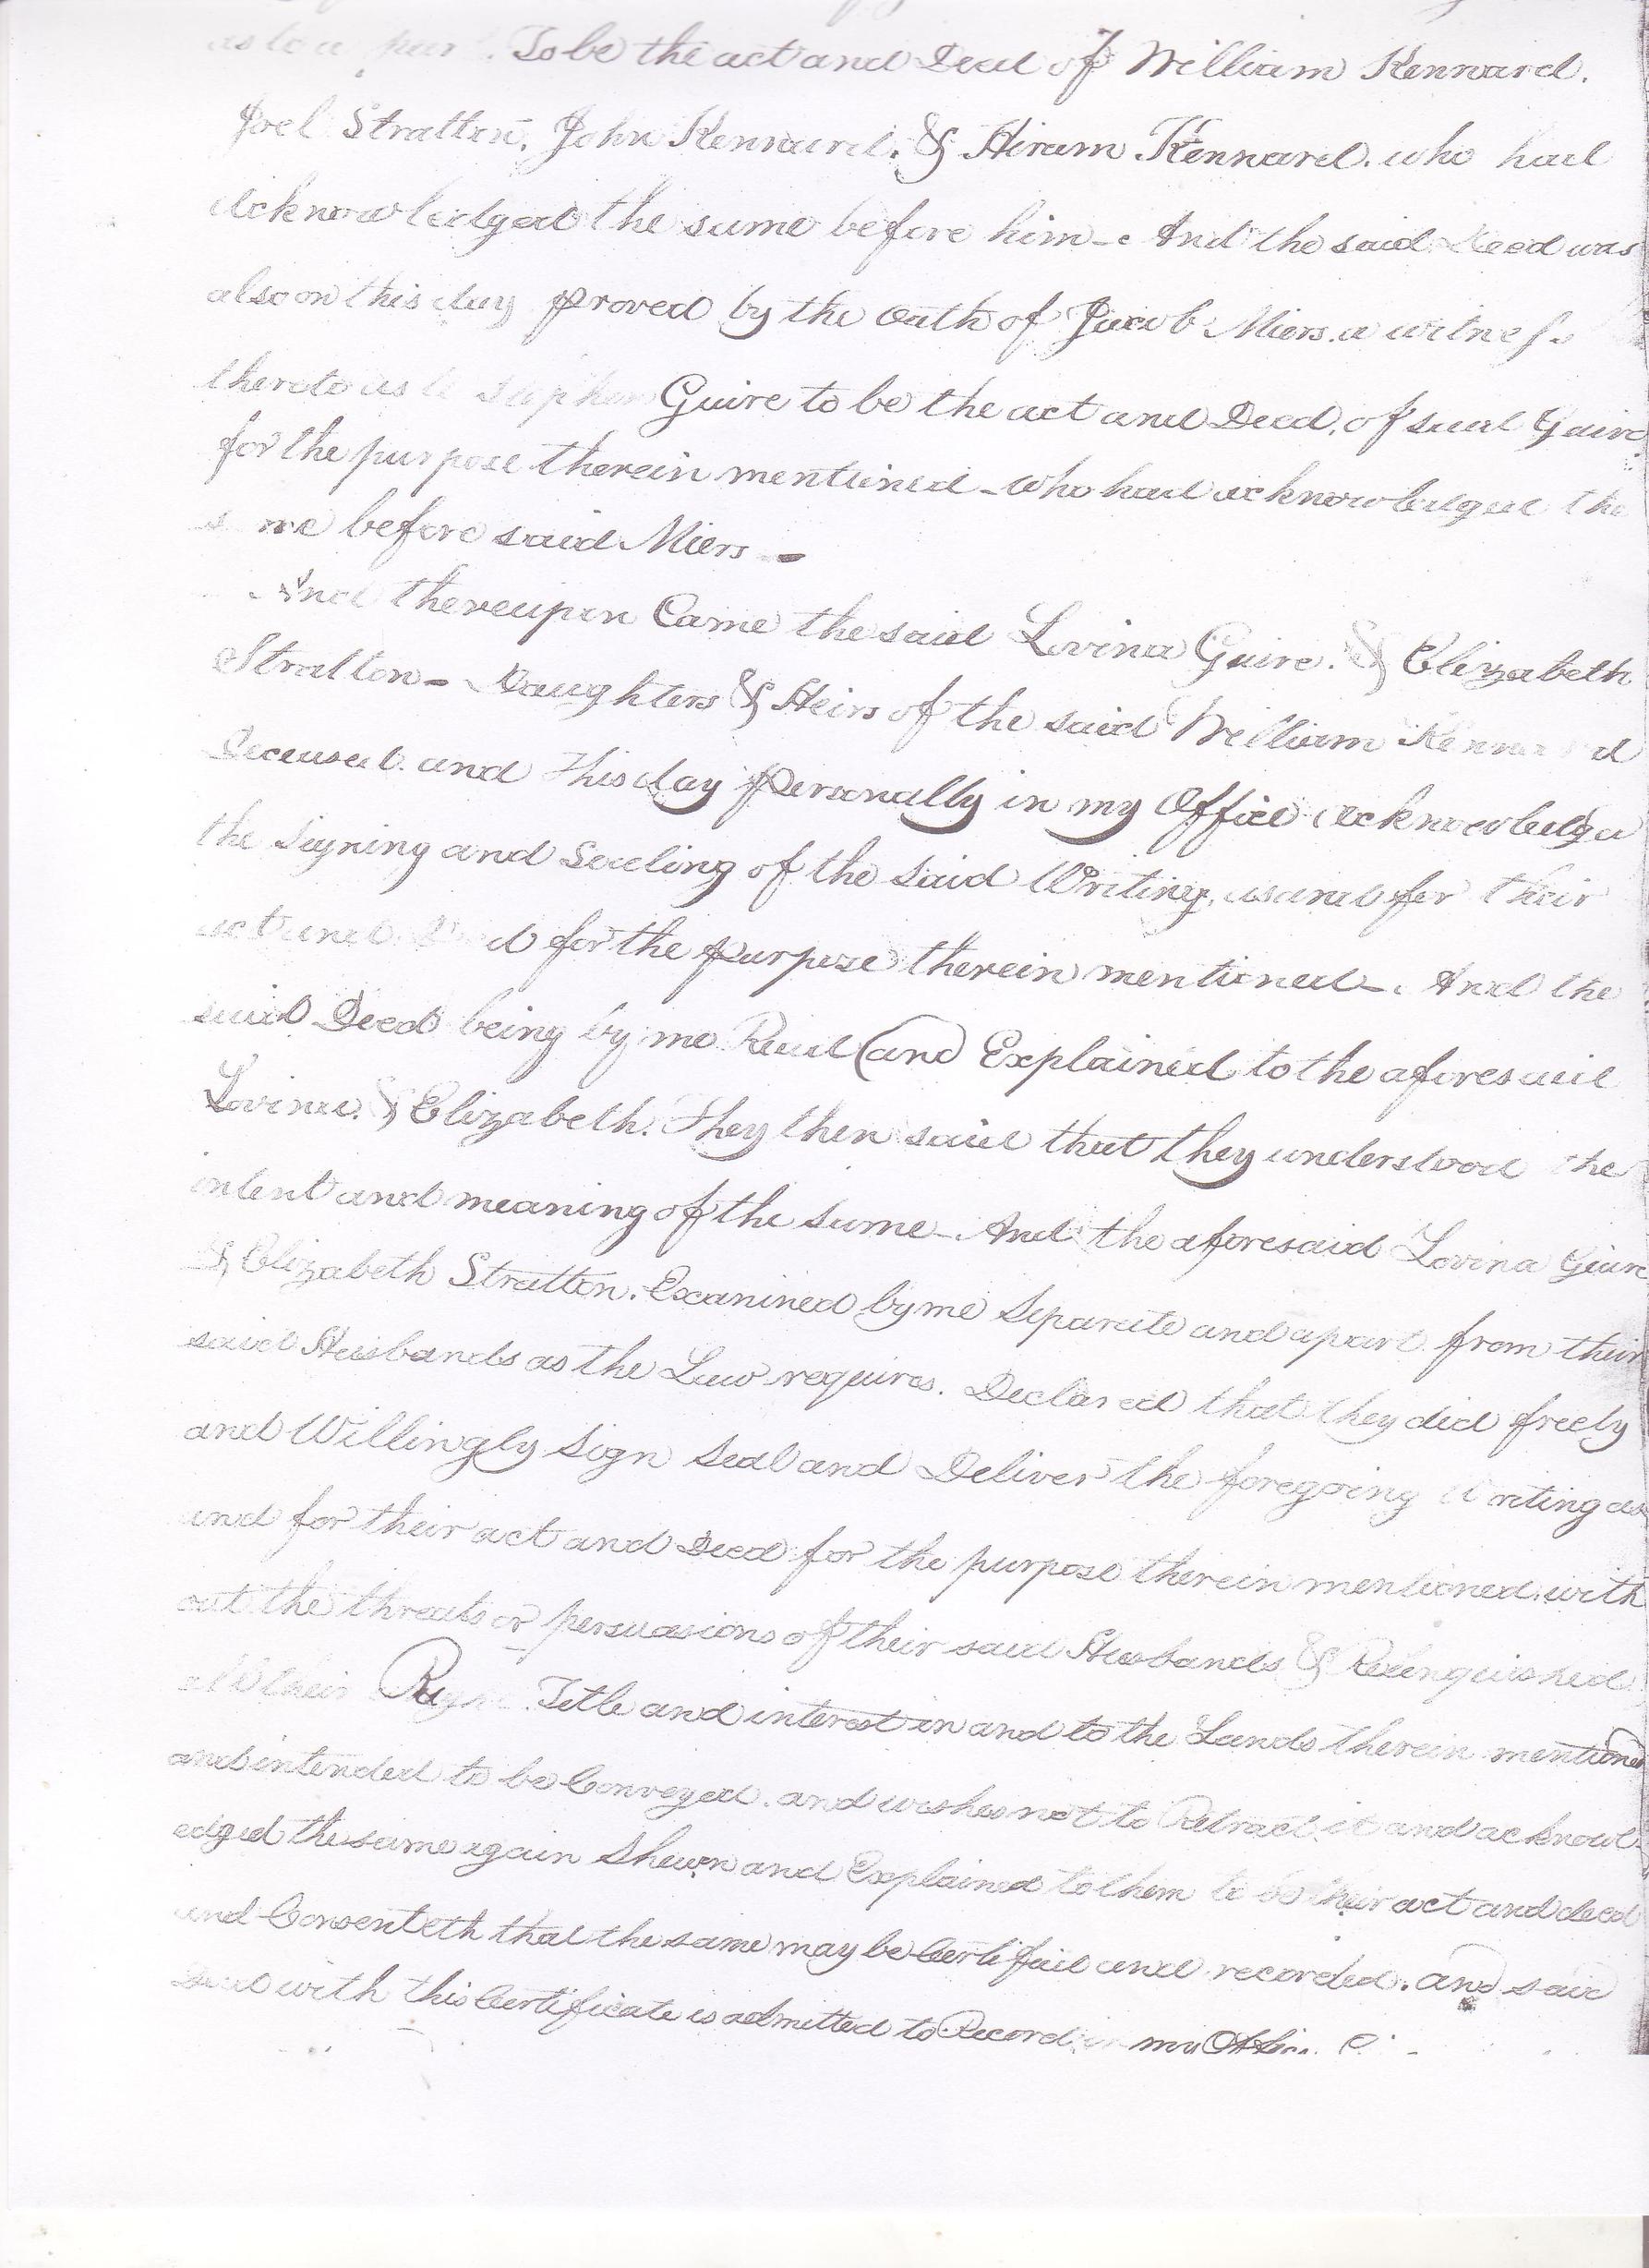 as to a part. To be the act and Deed of William Kennard.
Joel Stratton, John Kennard. & Hiram Kennard. who had
acknowledged the same before him - And the said Deed was
also on this day proved by the Oath of Jacob Miers. a witness
thereto as to Guire to be the act and Deed, of said Guire
for the purpose therein mentioned - who had acknowledged the
same before said Miers -
And thereupon Came the said Lovina Guire. & Elizabeth
Stratton - Daughters & Heirs of the said William Kennard
Deceased. and This day personally in my Office acknowledged
the signing and Sealing of the said Writing, as and for their
act and Deed for the purpose therein mentioned -. And the
said Deed being by me Read (and) Explained to the aforesaid
Lovina. & Elizabeth. They then said that they understood the
intent and meaning of the same - And the aforesaid Lovina Guire
& Elizabeth Stratton. Examined by me Separate and apart from their
said Husbands as the Law requires. Declared that they did freely
and Willingly Sign Seal and Deliver the foregoing Writing as
and for their act and Deed for the purpose therein mentioned. with
out the threats or persuasions of their said Husbands & Relenquished
all their Right. Title and interest in and to the Lands therein mentioned
and intended to be Conveyed. and wishes not to Retract it and acknowl
edged the same again Shewn and Explained to them to be their act and deed
and Consenteth that the same may be Certified and recorded. and said
Deed with this Certificate is admitted to Record in my Office.